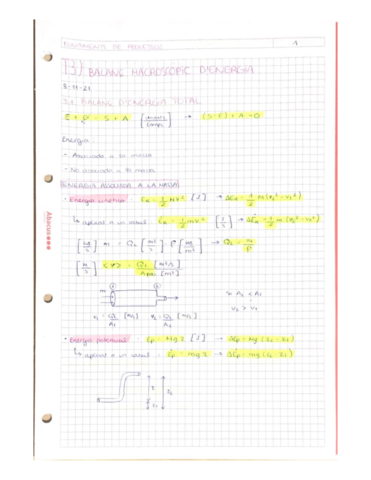 FONAMENTS DE PROCESSOS 1
B) BALANS MACROSCOPIC D'ENERGIA
3-11-21
3.1. BALANS D'ENERGIA TOTAL
E + P = S + A → (S-E) + A = 0
Energia
- Associada a la massa
- No associada a la massa
ENERGIA ASSOCIADA A LA MASSA
· Energia cinètica Ec = 1/2 M v² [J] → ΔEc = 1/2 M (v₂² - v₁²)
↳ aplicat a un cabal Ec = 1/2 m v² [J/s] → ΔEc = 1/2 m (v₂² - v₁²)
[kg/s] m = QL [m³/s] · ρ [kg/m³] → QL = m/ρ
[m/s] <v> = QL [m³/s] / A [m²]
① ②
v₁ = QL/A₁ [m/s] v₂ = QL/A₂ [m/s]
A₂ < A₁
v₂ > v₁
· Energia potencial Ep = Mgz [J] → ΔEp = Mg (z₂ - z₁)
↳ aplicat a un cabal Ep = mgz → ΔEp = mg (z₂ - z₁)
z z₂
z₁
Abacus